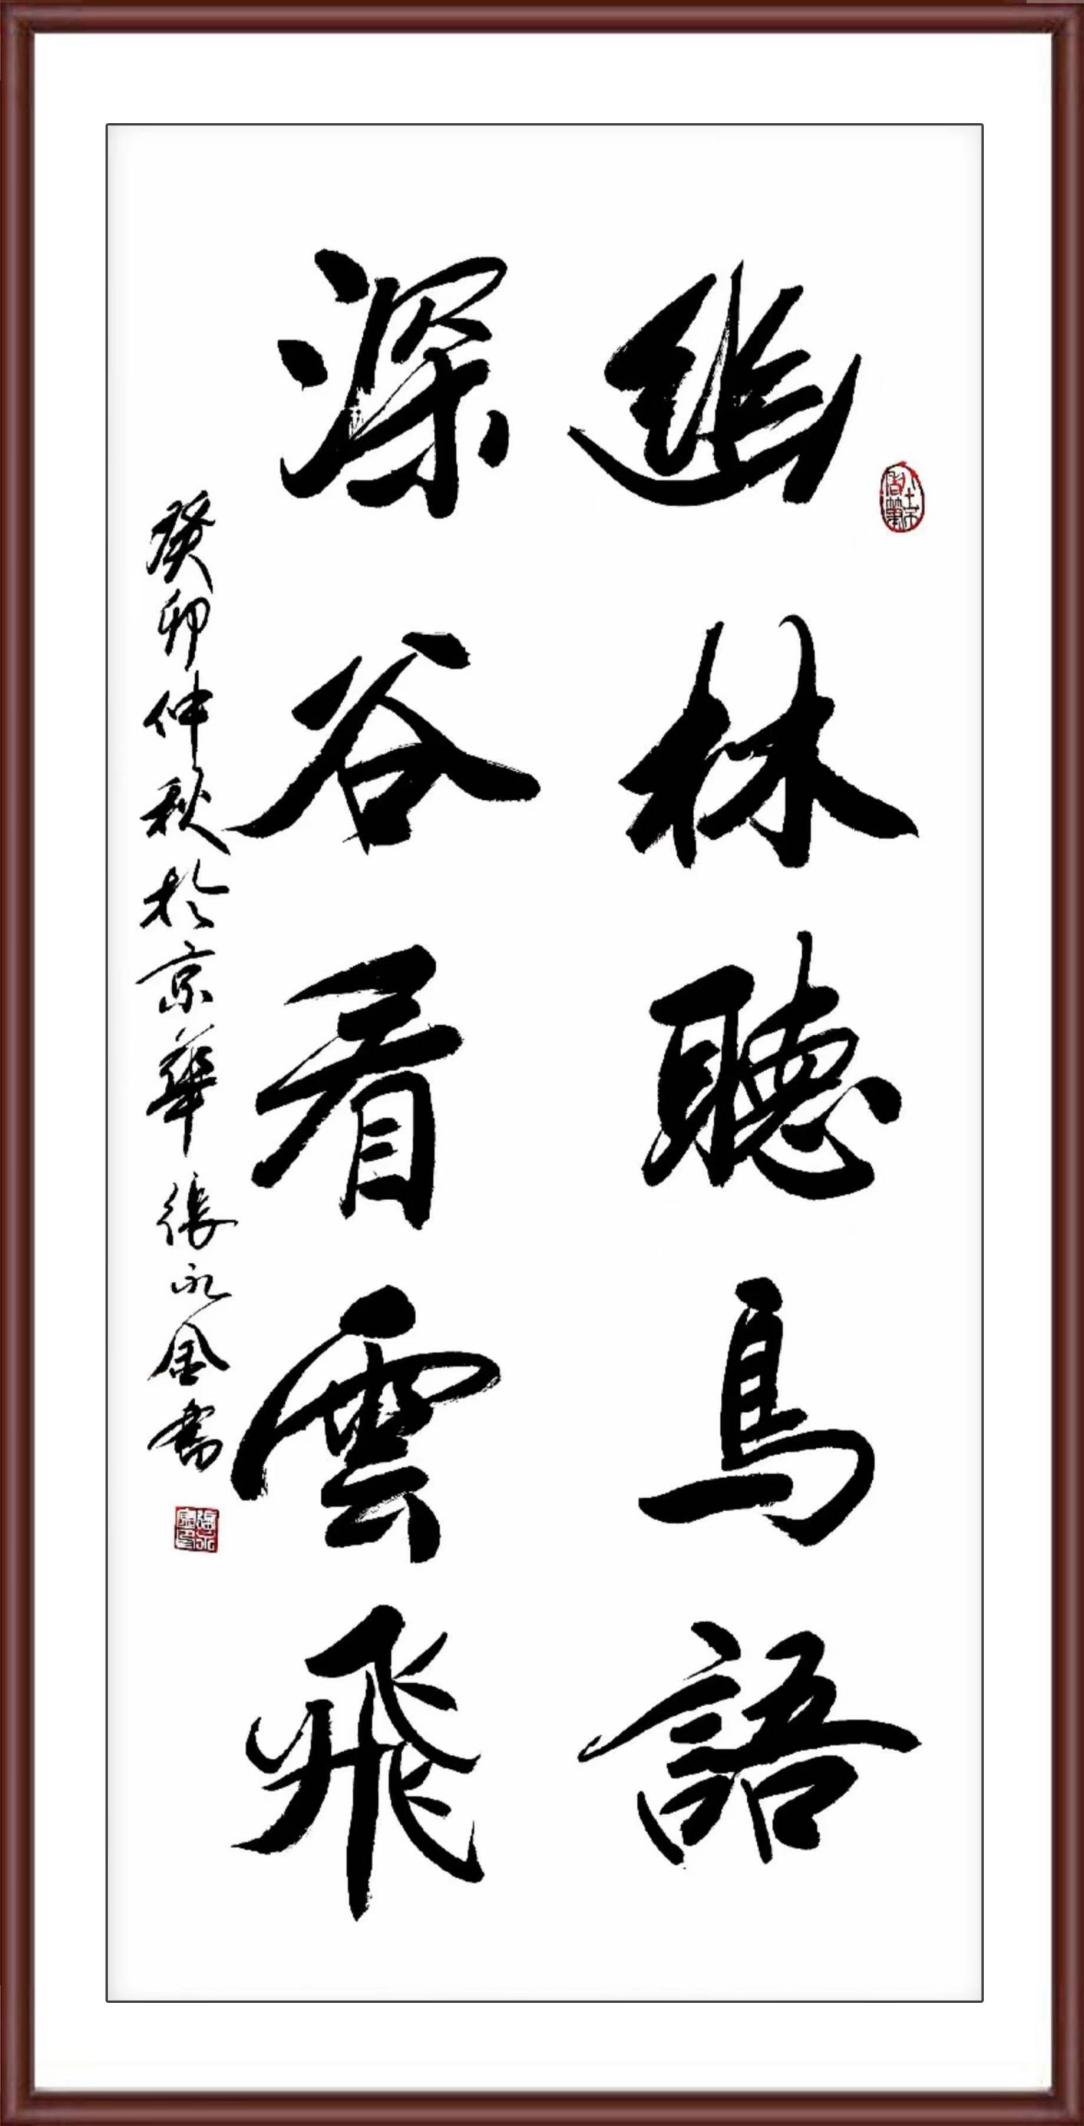 幽林聽鳥語
深谷看雲飛
癸卯仲秋於京華張永金書